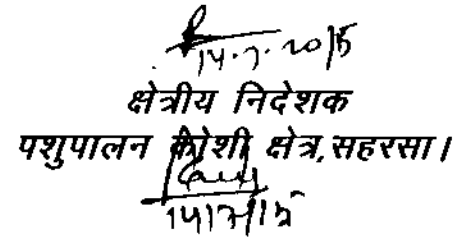 14.7.2015
क्षेत्रीय निदेशक
पशुपालन कोशी क्षेत्र, सहरसा।